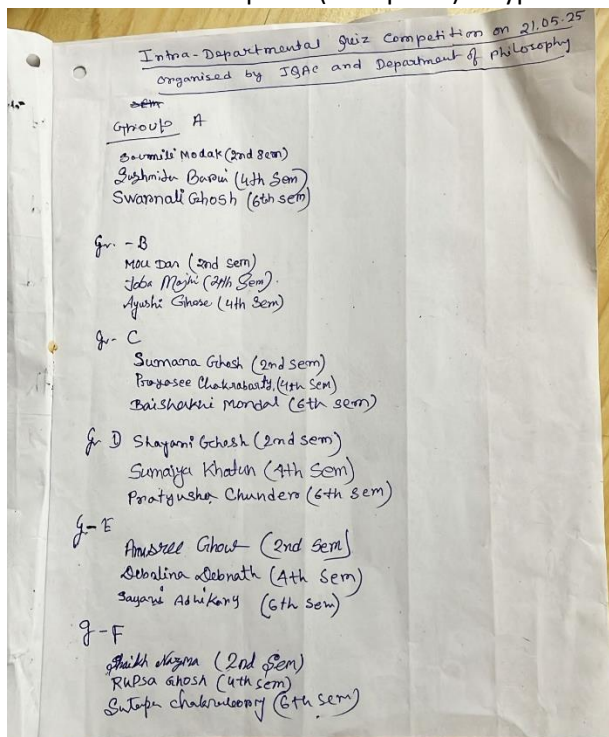 Intra-Departmental Quiz Competition on 21.05.25
organised by IQAC and Department of philosophy
Group A
Soumili Modak (2nd Sem)
Sushmita Barui (4th Sem)
Swarnali Ghosh (6th sem)
Gr. - B
Mou Dan (2nd sem)
Joba Majhi (4th Sem).
Ayushi Ghose (4th Sem)
Gr - C
Sumana Ghosh (2nd sem)
Proyasee Chakrabarty, (4th Sem)
Baishakhi Mondal (6th sem)
Gr D Shayani Ghosh (2nd sem)
Sumaiya Khatun (4th Sem)
Pratyusha Chunder (6th sem)
G-E
Anusree Ghosh (2nd Sem)
Debalina Debnath (4th Sem)
Sayani Adhikary (6th Sem)
g-F
Shaikh Nazma (2nd Sem)
RUPSA GHOSH (4th sem)
Sutapa (6th sem)